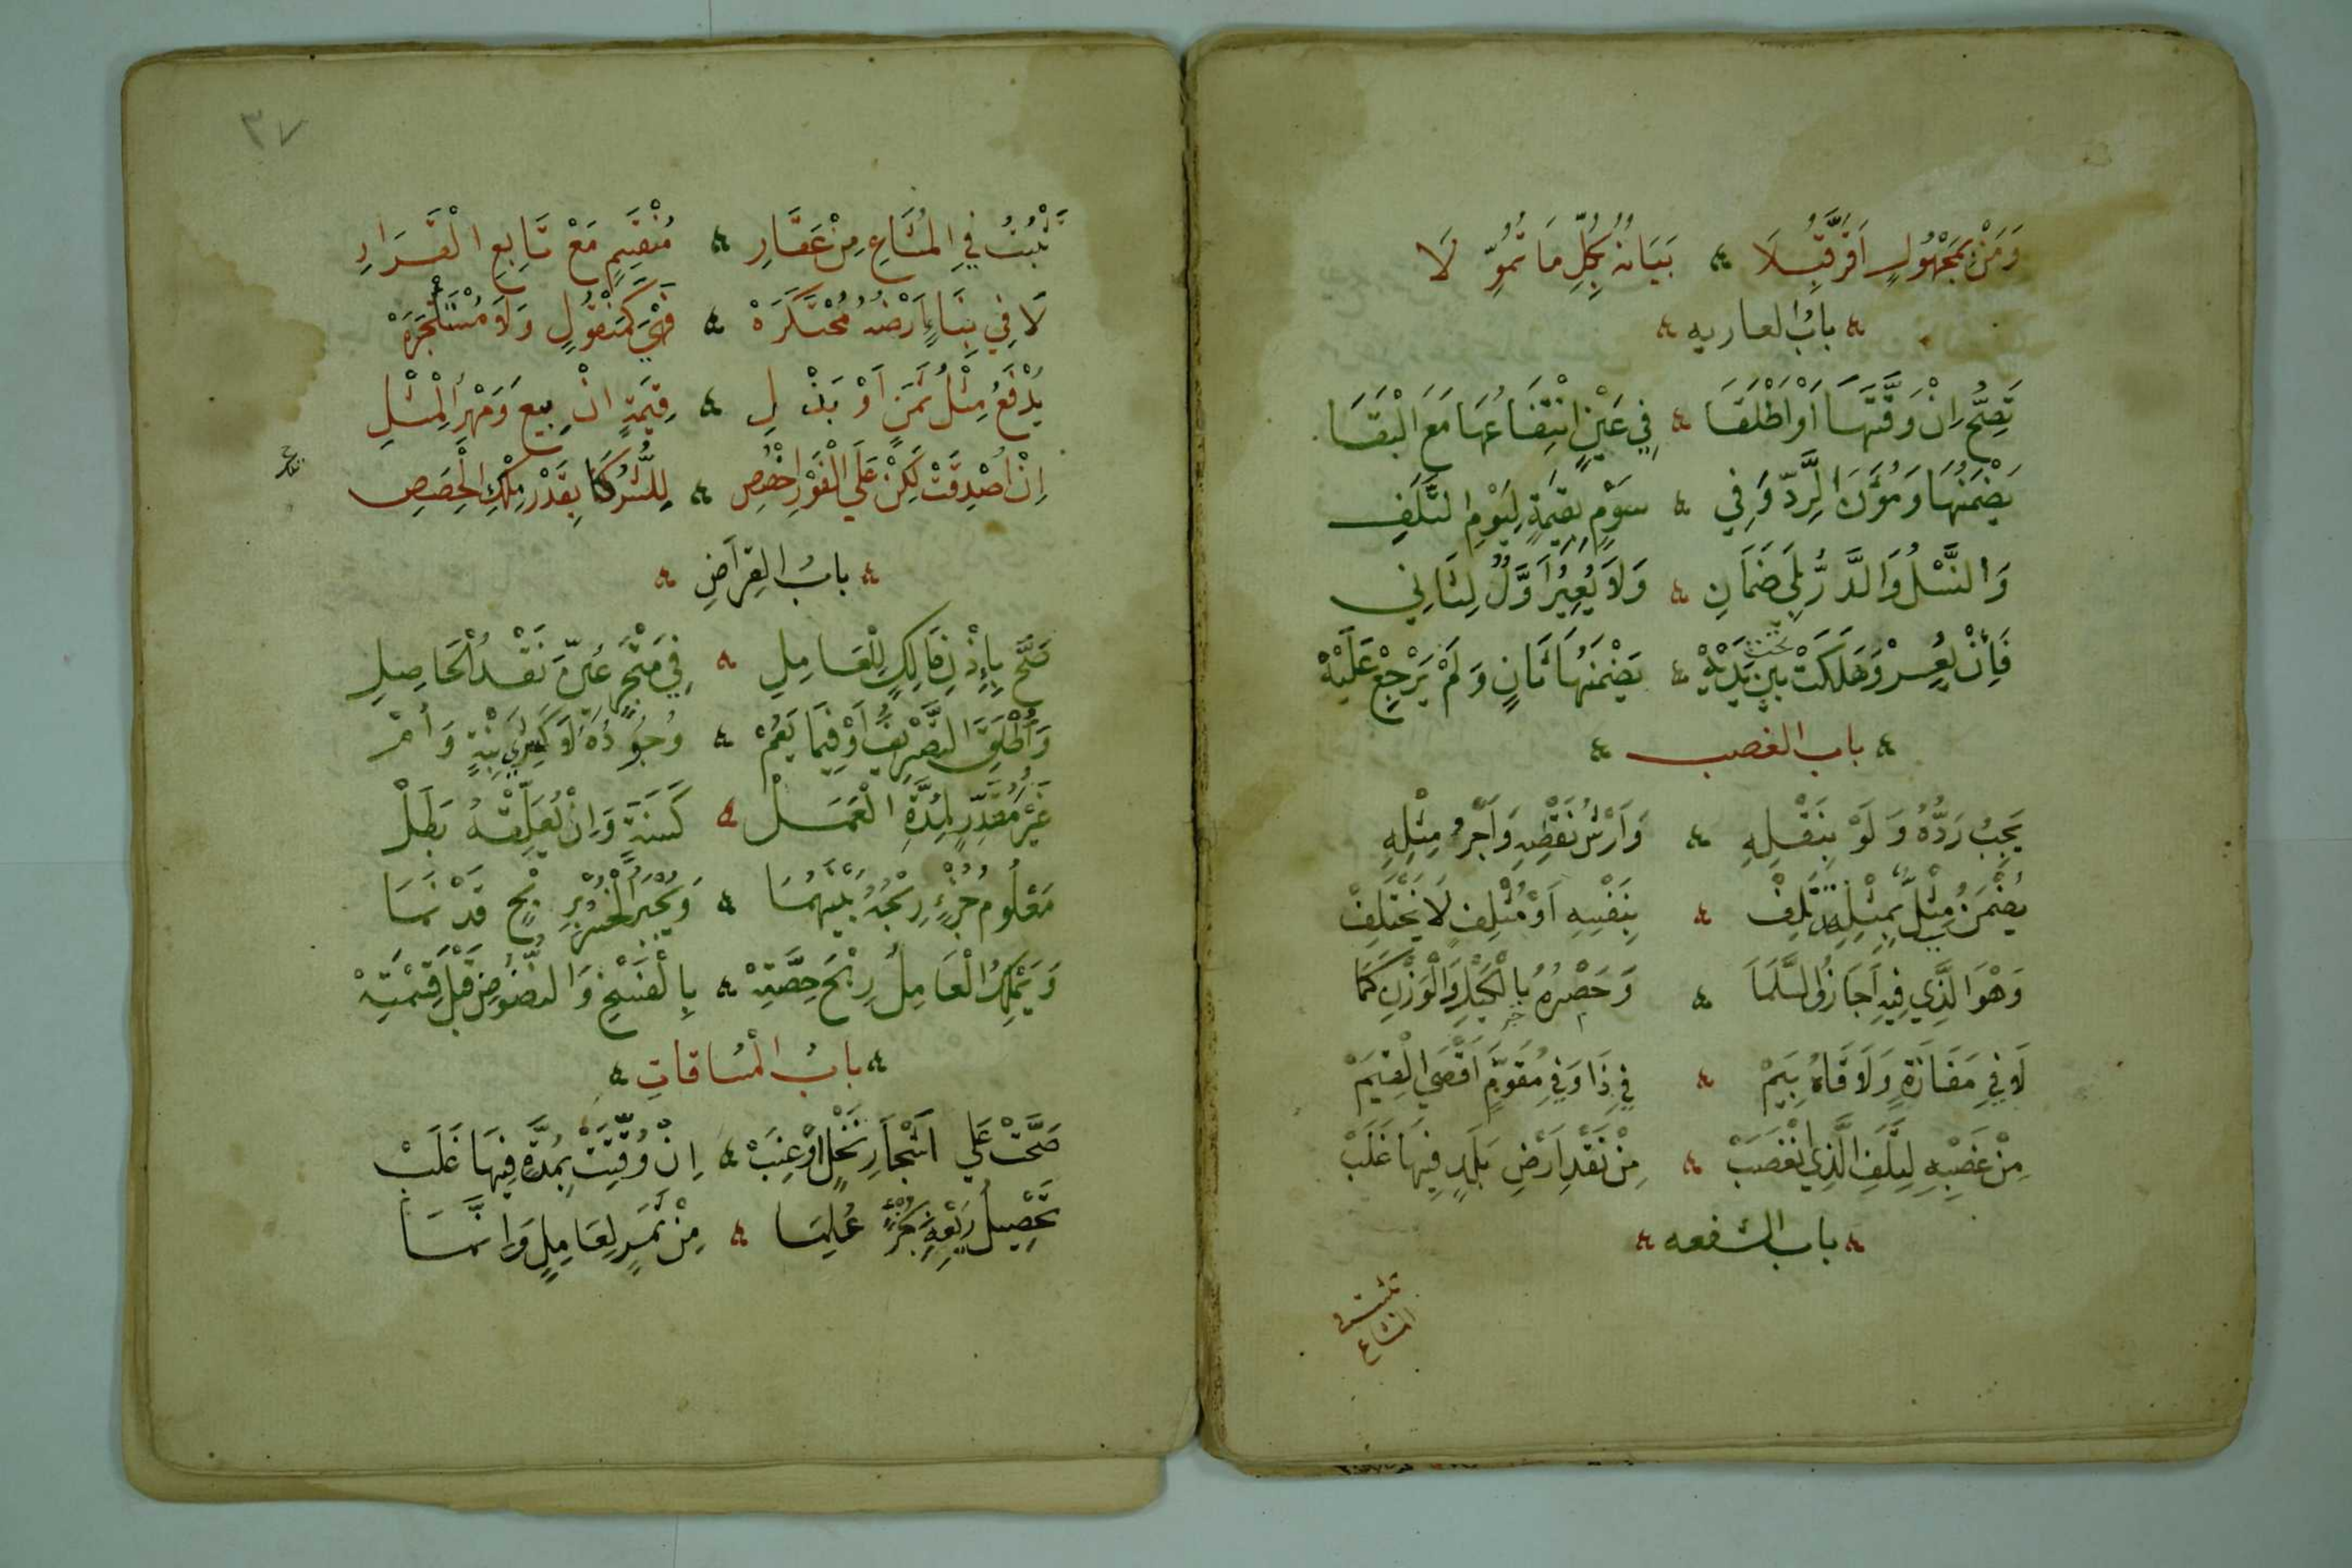 وَمَنْ بِمَجْهُولٍ اَقَرَّ قُبِلَا ۞ بَيَانُهُ بِكُلِّ مَا تُمُوِّلَا
بابُ العاريه
تَصِحُّ اِنْ وَقَّتَهَا اَوْ اَطْلَقَا ۞ فِي عَيْنٍ انْتِفَاعُهَا مَعَ الْبَقَا
يَضْمَنُهَا وَمُؤَنَ الرَّدِّ وَفِي ۞ سَوْمٍ بِقِيمَةٍ لِيَوْمِ التَّلَفِ
وَالنَّسْلُ وَالدَّرُّ بِلَى ضَمَانِ ۞ وَلَا يُعِيرُ اَوَّلٌ لِثَانِي
فَاِنْ يُعِرْ وَهَلَكَتْ بَيْنَ يَدَيْهْ ۞ يَضْمَنُهَا ثَانٍ وَلَمْ يَرْجِعْ عَلَيْهْ
تحت
باب الغصب
يَجِبُ رَدُّهُ وَلَوْ بِنَقْلِهِ ۞ وَاَرْشُ نَقْصِهِ وَاَجْرُ مِثْلِهِ
يُضْمَنُ مِثْلِيٌّ بِمِثْلِهِ تَلِفْ ۞ بِنَفْسِهِ اَوْ مُتْلِفٍ لَا يَخْتَلِفْ
وَهْوَ الَّذِي فِيهِ اَجَازُوا السَّلَمَا ۞ وَحَصْرُهُ بِالْكَيْلِ وَالْوَزْنِ كَمَا
لَا فِي مَفَازَةٍ وَلَاقَاهُ بِيَمْ ۞ فِي ذَا وَفِي مُقَوَّمٍ اَقْصَى الْقِيَمْ
مِنْ غَصْبِهِ لِتَلَفِ الَّذِي انْغَصَبْ ۞ مِنْ نَقْدِ اَرْضِ بَلَدٍ فِيهَا غَلَبْ
باب الشفعه
تثبت في
المشاع
٣٧
تَثْبُتُ فِي الْمُشَاعِ مِنْ عَقَارِ ۞ مُنْقَسِمٍ مَعْ تَابِعِ الْقَرَارِ
لَا فِي بِنَاءٍ اَرْضُهُ مُحْتَكَرَهْ ۞ فَهْيَ كَمَنْقُولٍ وَلَا مُسْتَأْجَرَهْ
يُدْفَعُ مِثْلُ ثَمَنٍ اَوْ بَذْلِ ۞ قِيمَةٍ انْ بِيعَ وَمَهْرِ الْمِثْلِ
اِنْ اُصْدِقَتْ لَكِنْ عَلَى الْفَوْرِ اخْصُصِ ۞ لِلشُّرَكَا بِقَدْرِ مِلْكِ الْحِصَصِ
بابُ القِرَاضِ
صَحَّ بِاِذْنِ مَالِكٍ لِلْعَامِلِ ۞ فِي مَتْجَرٍ عُيِّنَ نَقْدُ الْحَاصِلِ
وَاُطْلِقَ التَّصْرِيفُ اَوْ فِيمَا يَعُمْ ۞ وُجُودُهُ لَا كَشِرَى بِنْتٍ وَاُمْ
غَيْرَ مُقَدِّرٍ لِمُدَّةِ الْعَمَلْ ۞ كَسَنَةٍ وَاِنْ يُعَلِّقْهُ بَطَلْ
مَعْلُومُ جُزْءٍ رِبْحُهُ بَيْنَهُمَا ۞ وَيُجْبَرُ الْخُسْرُ بِرِبْحٍ قَدْ نَمَا
وَيَمْلِكُ الْعَامِلُ رِبْحَ حِصَّتِهْ ۞ بِالْفَسْخِ وَالنُّضُوضِ قَبْلَ قِسْمَتِهْ
بابُ الْمُسَاقاتِ
صَحَّتْ عَلَي اَشْجَارِ نَخْلٍ اَوْ عِنَبْ ۞ اِنْ وُقِّتَتْ بِمُدَّةٍ فِيهَا غَلَبْ
تَحْصِيلُ رَيْعِهِ بِجُزْءٍ عُلِمَا ۞ مِنْ ثَمَرٍ لِعَامِلٍ وَاِنَّمَا